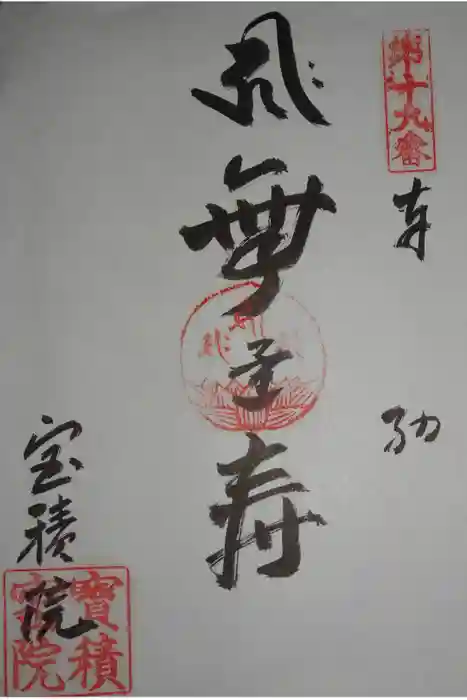 第十九番
奉納
ह्रीः
無量寿
宝積院
寶積
院